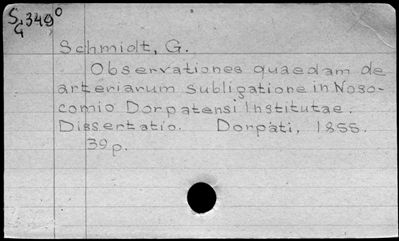 S. 349°
4
Schmidt, G.
Observationes quaedam de
arteriarum subligatione in Noso-
comio Dorpatensi Institutae.
Dissertatio. Dorpati, 1855.
39 p.